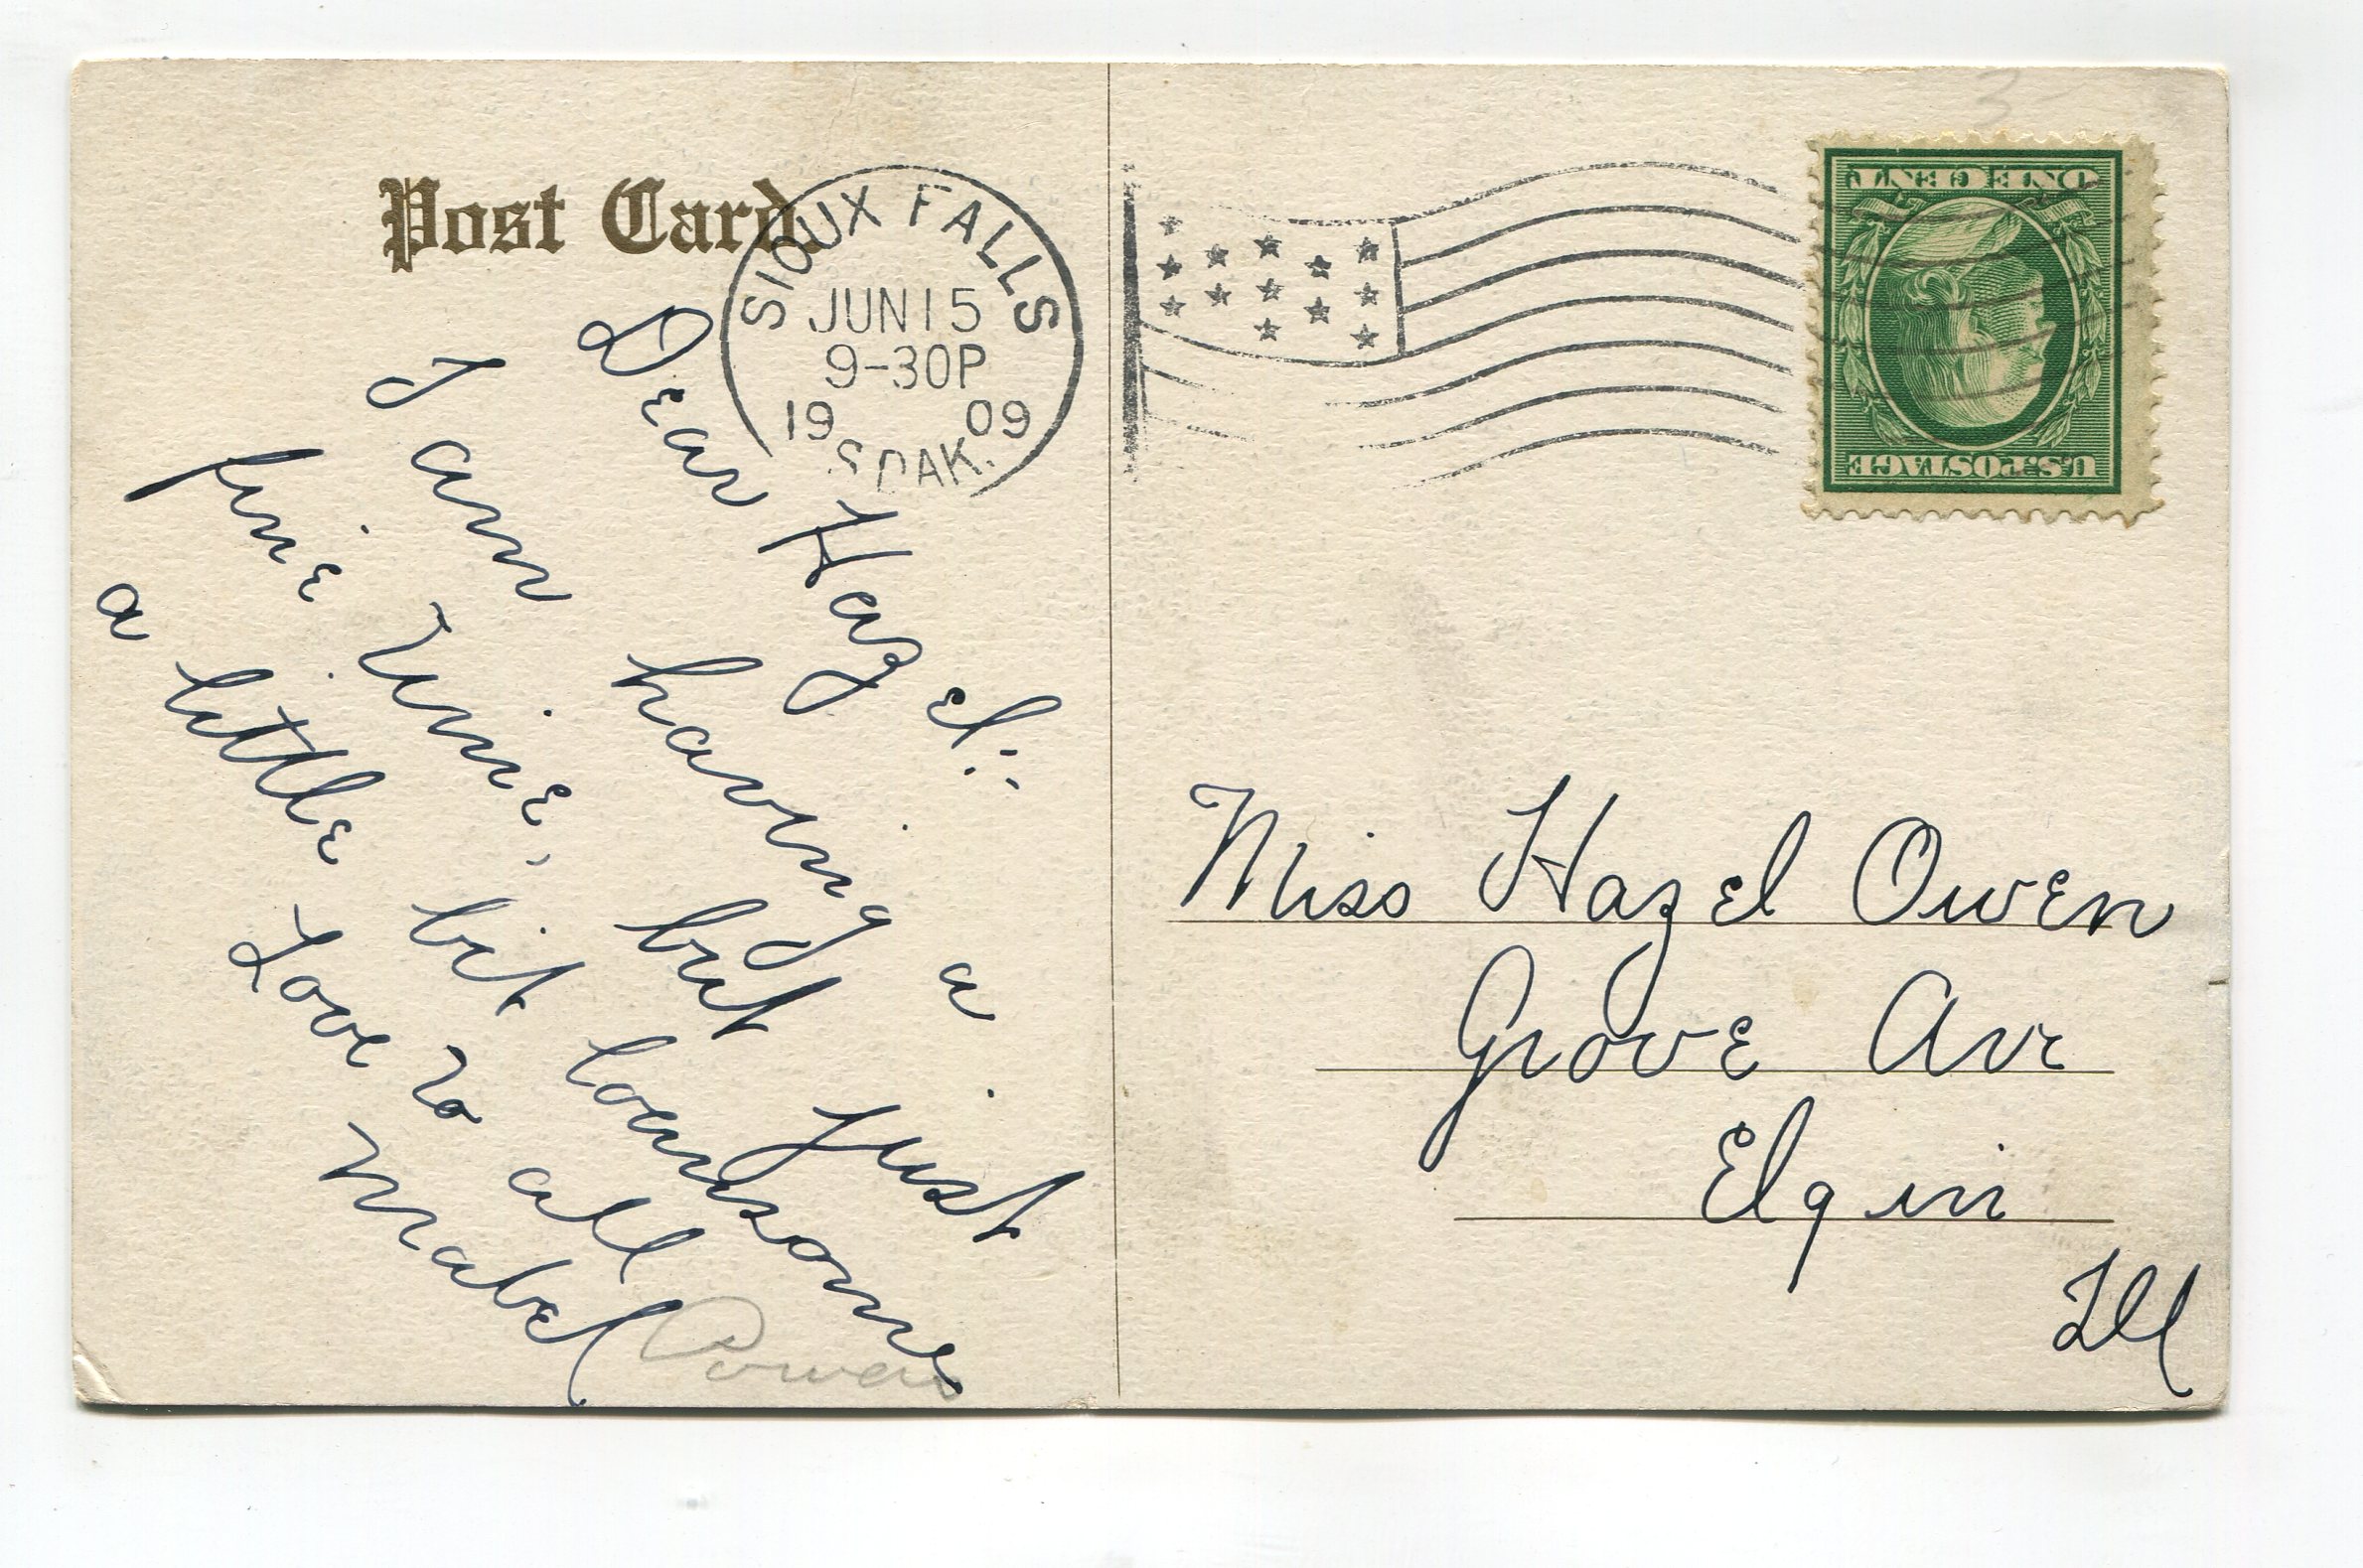 Post Card.
SIOUX FALLS
JUN 15
9-30P
19 09
S.DAK.
ONE CENT
U.S. POSTAGE
3-
Dear Hazel:-
I am having a
fine time, but just
a little bit lonesome
Love to all
Mabel
Miss Hazel Owen
Grove Ave
Elgin
Ill